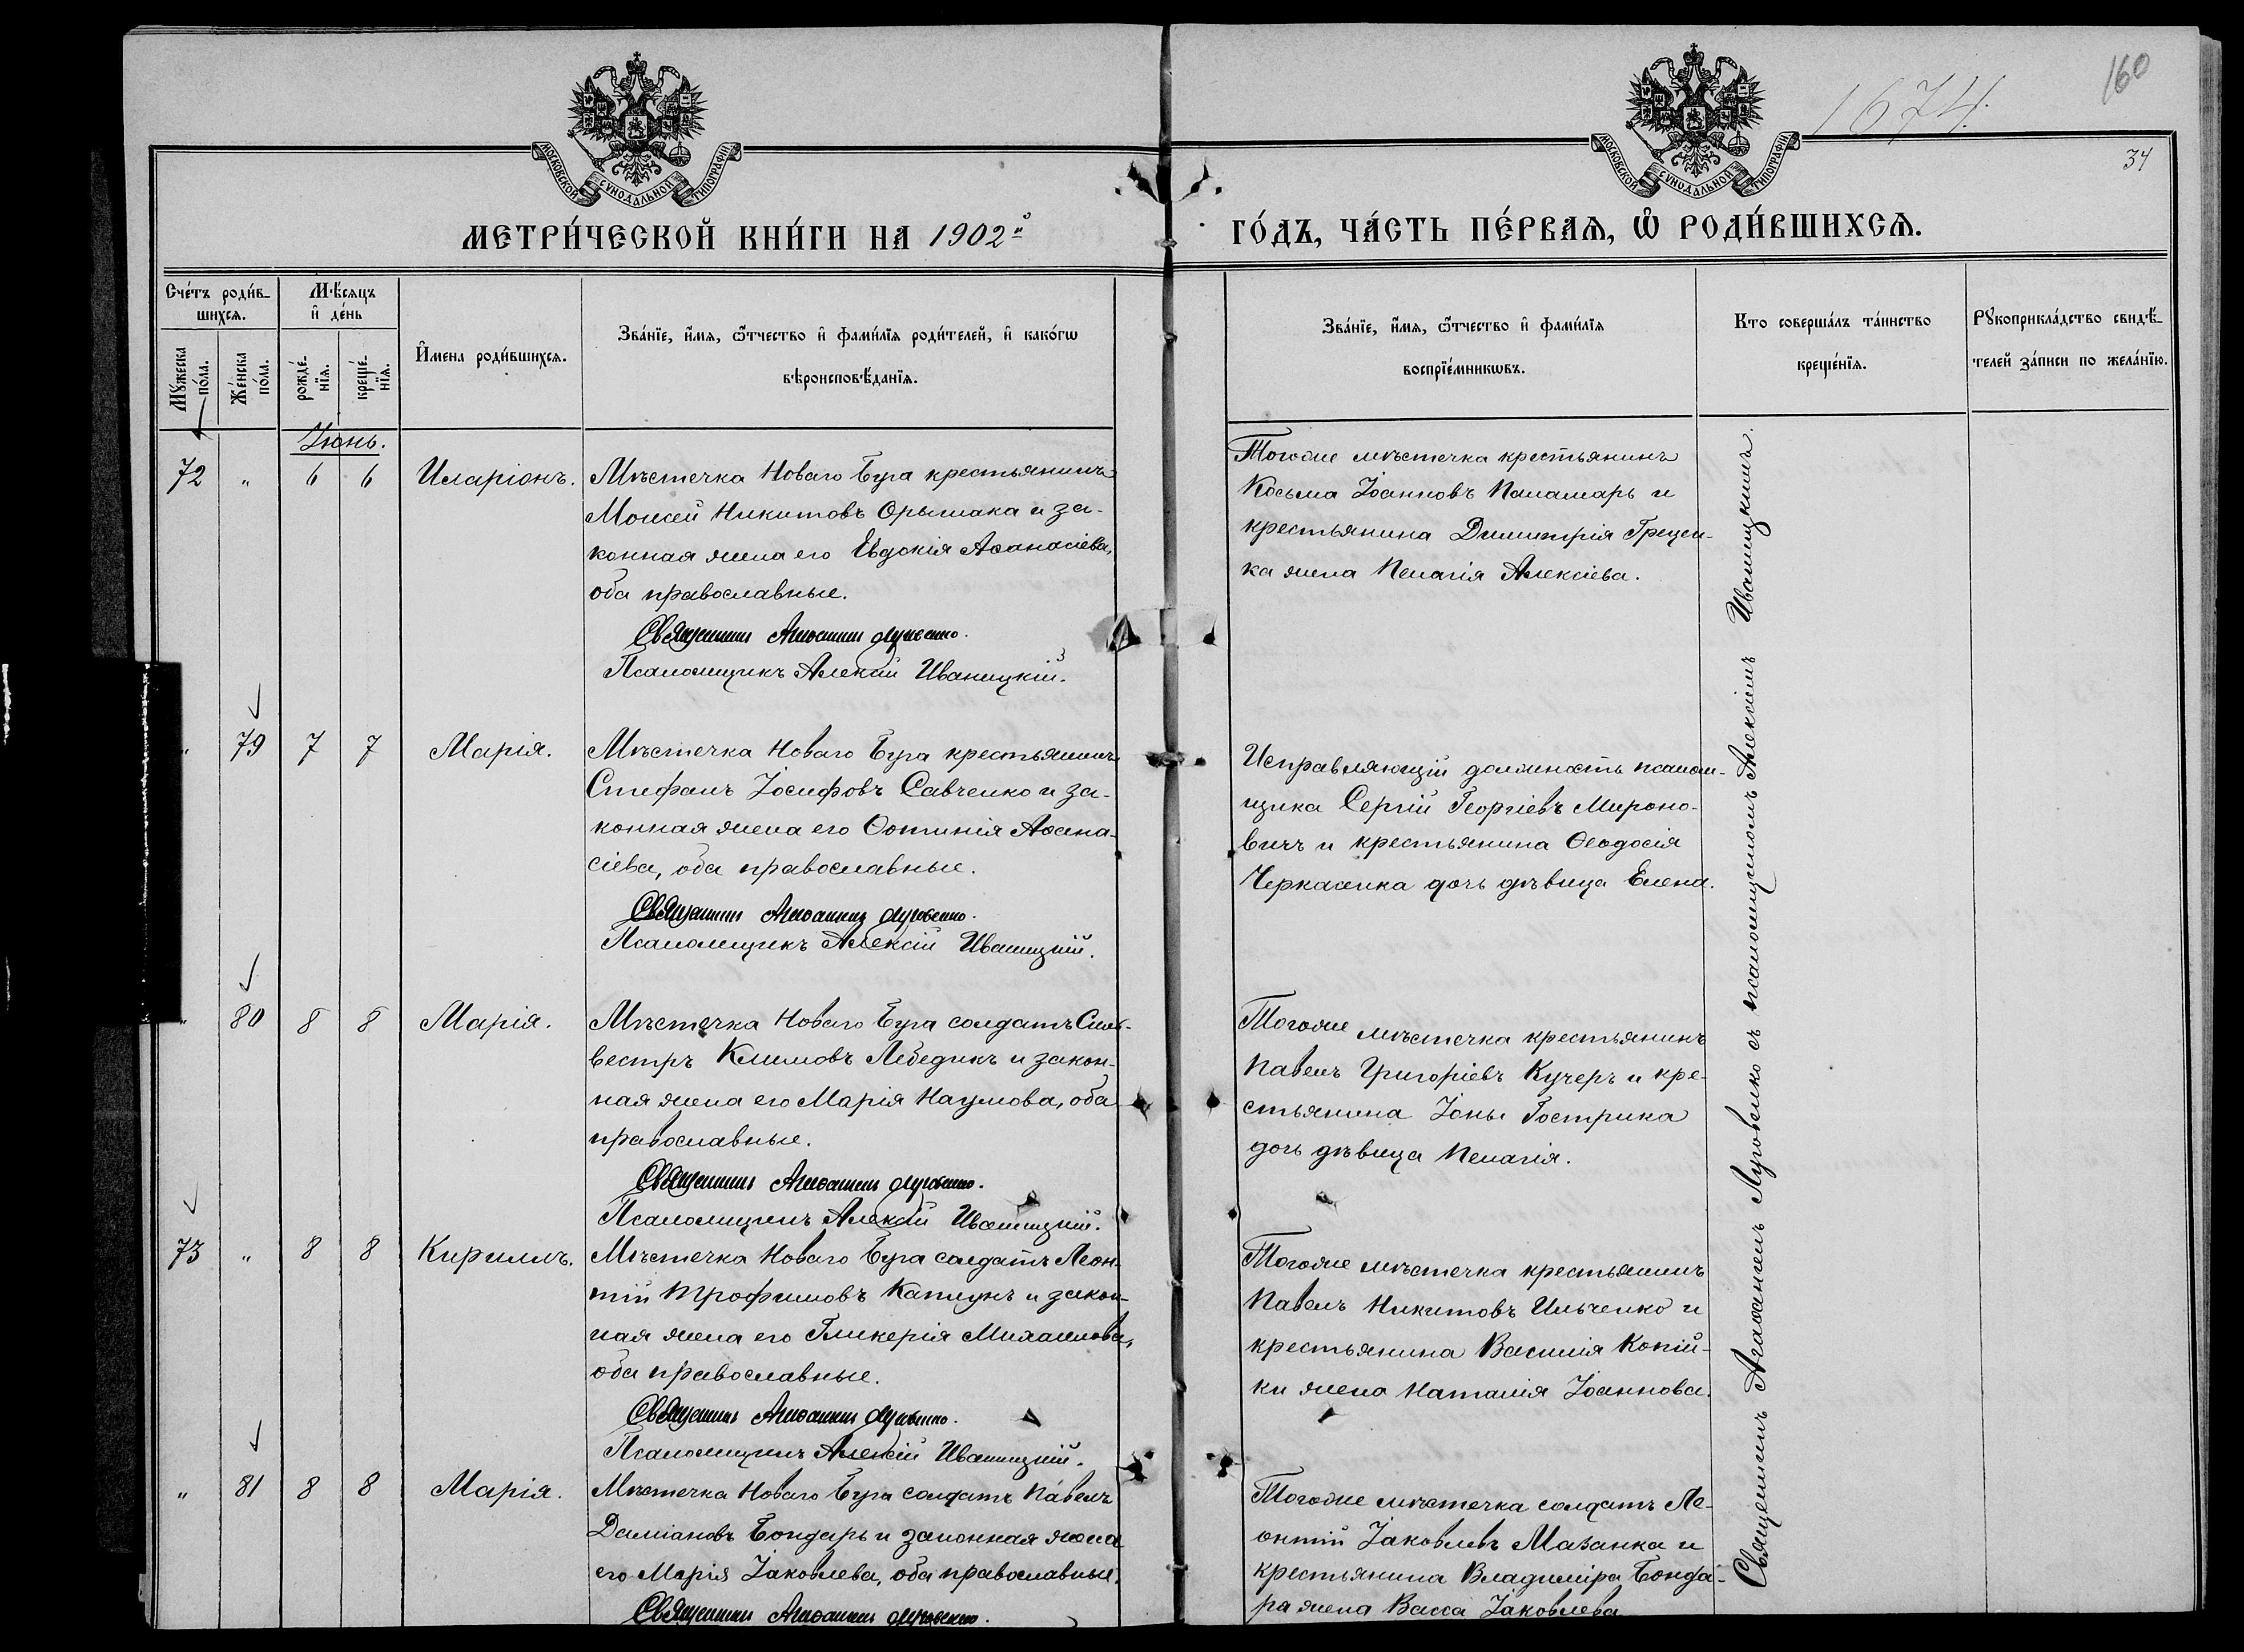 160
1674.
34
МОСКОВСКОЙ СѴНОДАЛЬНОЙ ТИПОГРАФІИ
МОСКОВСКОЙ СѴНОДАЛЬНОЙ ТИПОГРАФІИ
МЕТРИ́ЧЕСКОЙ КНИ́ГИ НА 1902й
ГО́ДЪ, ЧА́СТЬ ПЕ́РВАѦ, Ѡ҆ РОДИ́ВШИХСѦ.
Сче́тъ роди́в-
шихсѧ.
Мѣ́сѧцъ
и҆ де́нь
Мꙋ́жеска по́ла.
Же́нска по́ла.
рожде́-
нїѧ.
креще́-
нїѧ.
И҆мена роди́вшихсѧ.
Зва́нїе, и҆́мѧ, ѻ҆́тчество и҆ фами́лїѧ роди́телей, и҆ како́гѡ
вѣроисповѣ́данїѧ.
Зва́нїе, и҆́мѧ, ѻ҆́тчество и҆ фами́лїѧ
воспрїе́мникѡвъ.
Кто соверша́лъ та́инство
креще́нїѧ.
Рꙋкоприкла́дство свидѣ́-
телей за́писи по жела́нїю.
Іюнь.
72 " 6 6 Иларіонъ.
Мѣстечка Новаго Буга крестьянинъ
Моисей Никитовъ Орышака и за-
конная жена его Евдокія Аѳанасіева,
оба православные.
Священникъ Агаѳангелъ Луговенко.
Псаломщикъ Алексій Иваницкій.
Тогоже мѣстечка крестьянинъ
Косьма Іоанновъ Паламарь и
крестьянина Димитрія Грецен-
ка жена Пелагія Алексіева.
" 79 7 7 Марія.
Мѣстечка Новаго Буга крестьянинъ
Стефанъ Іосифовъ Савченко и за-
конная жена его Фотинія Аѳана-
сіева, оба православные.
Священникъ Агаѳангелъ Луговенко.
Псаломщикъ Алексій Иваницкій.
Исправляющій должность псалом-
щика Сергій Георгіевъ Мироно-
вичъ и крестьянина Ѳеодосія
Черкасенка дочь дѣвица Елена.
" 80 8 8 Марія.
Мѣстечка Новаго Буга солдатъ Силь-
вестръ Климовъ Лебедикъ и закон-
ная жена его Марія Наумова, оба
православные.
Священникъ Агаѳангелъ Луговенко.
Псаломщикъ Алексій Иваницкій.
Тогоже мѣстечка крестьянинъ
Павелъ Григоріевъ Кучеръ и кре-
стьянина Іоны Гострика
дочь дѣвица Пелагія.
73 " 8 8 Кириллъ.
Мѣстечка Новаго Буга солдатъ Леон-
тій Трофимовъ Каплунъ и закон-
ная жена его Гликерія Михаилова,
оба православные.
Священникъ Агаѳангелъ Луговенко.
Псаломщикъ Алексій Иваницкій.
Тогоже мѣстечка крестьянинъ
Павелъ Никитовъ Ильченко и
крестьянина Василія Копій-
ки жена Наталія Іоаннова.
" 81 8 8 Марія.
Мѣстечка Новаго Буга солдатъ Павелъ
Даміановъ Бондарь и законная жена
его Марія Іаковлева, оба православные.
Священникъ Агаѳангелъ Луговенко.
Тогоже мѣстечка солдатъ Ле-
онтій Іаковлевъ Мазанка и
крестьянина Владиміра Бонда-
ря жена Васса Іаковлева
Священникъ Агаѳангелъ Луговенко съ псаломщикомъ Алексіемъ Иваницкимъ.